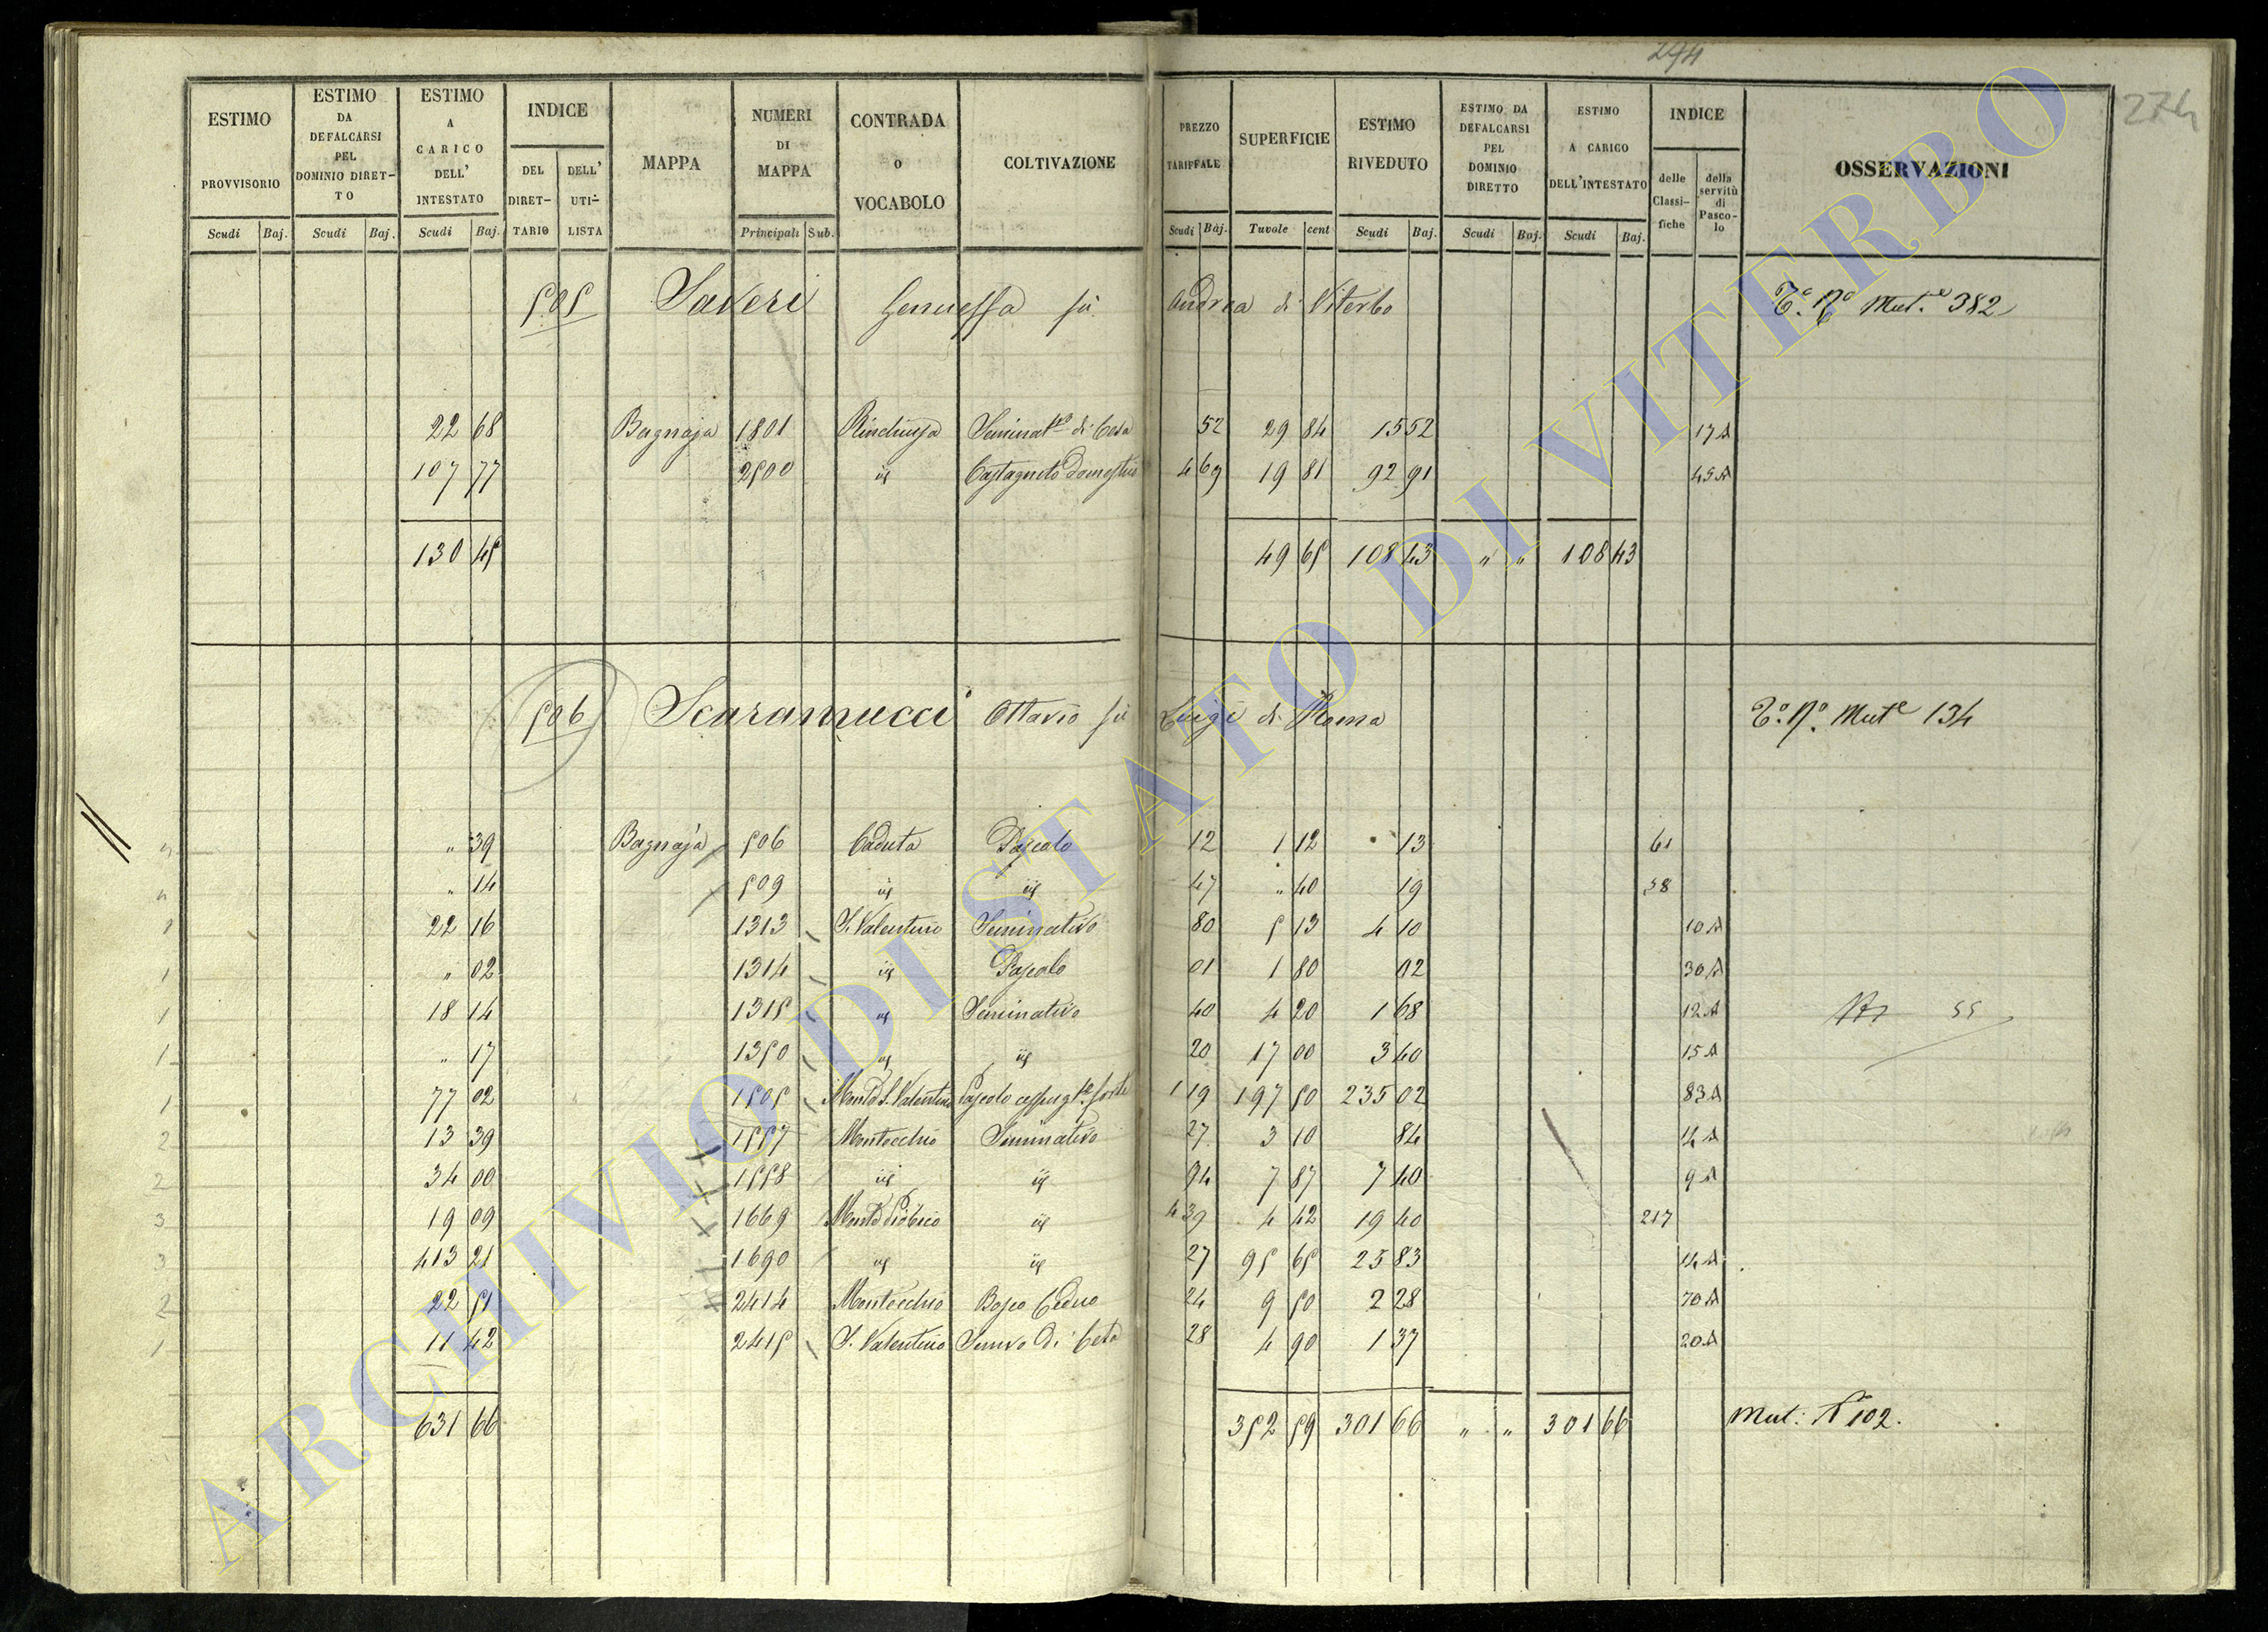 274
274
ESTIMO PROVVISORIO | ESTIMO DA DEFALCARSI PEL DOMINIO DIRETTO | ESTIMO A CARICO DELL' INTESTATO | INDICE DEL DIRETTARIO | DELL' UTILISTA | MAPPA | NUMERI DI MAPPA | CONTRADA O VOCABOLO | COLTIVAZIONE | PREZZO TARIFFALE | SUPERFICIE | ESTIMO RIVEDUTO | ESTIMO DA DEFALCARSI PEL DOMINIO DIRETTO | ESTIMO A CARICO DELL'INTESTATO | INDICE delle Classifiche | della servitù di Pascolo | OSSERVAZIONI
Scudi | Baj. | Scudi | Baj. | Scudi | Baj. | Principali | Sub. | Scudi | Baj. | Tavole | cent | Scudi | Baj. | Scudi | Baj. | Scudi | Baj.
505 Saveri Genueffa fù Andrea di Viterbo Mut.e 382
22 68 Bagnaja 1801 Rinchiusa Seminat.o di Cesa 52 29 84 15 52 17 A
107 77 2500 id Castagneto Domestico 4 69 19 81 92 91 45 A
130 45 49 65 108 43 " " 108 43
506 Scaramucci Ottavio fù Luigi di Roma Mut.e 134
" 39 Bagnaja 506 Caduta Pascolo 12 1 12 13 61
" 14 509 id id 47 " 40 19 58
1 22 16 1313 S. Valentino Seminativo 80 5 13 4 10 10 A
1 " 02 1314 id Pascolo 01 1 80 02 30 A
1 18 14 1315 id Seminativo 40 4 20 1 68 12 A 55
1 " 17 1350 id id 20 17 00 3 40 15 A
1 77 02 1505 Monte S. Valentino Pascolo cespug.to forte 1 19 197 50 235 02 83 A
2 13 39 1557 Montecchio Seminativo 27 3 10 84 14 A
2 34 00 1558 id id 94 7 87 7 40 9 A
3 19 09 1669 id 4 39 4 42 19 40 217
3 413 21 1690 id id 27 95 65 25 83 14 A
2 22 51 2414 Montecchio Bosco Ceduo 24 9 50 2 28 70 A
1 11 42 2415 S. Valentino Semvo di Cesa 28 4 90 1 37 20 A
631 66 352 59 301 66 " " 301 66 Mut: N° 102.
ARCHIVIO DI STATO DI VITERBO